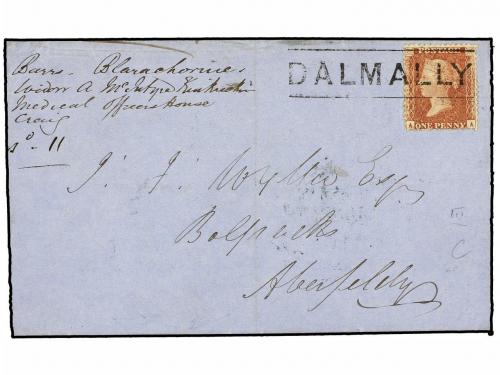 Barrs. Blarachorine.
Widow A McIntyre
Medical Officers House
Craig
11
DALMALLY
POSTAGE
A A
ONE PENNY
J. J. Wyllie Esq.
Bolfracks
Aberfeldy
III
C